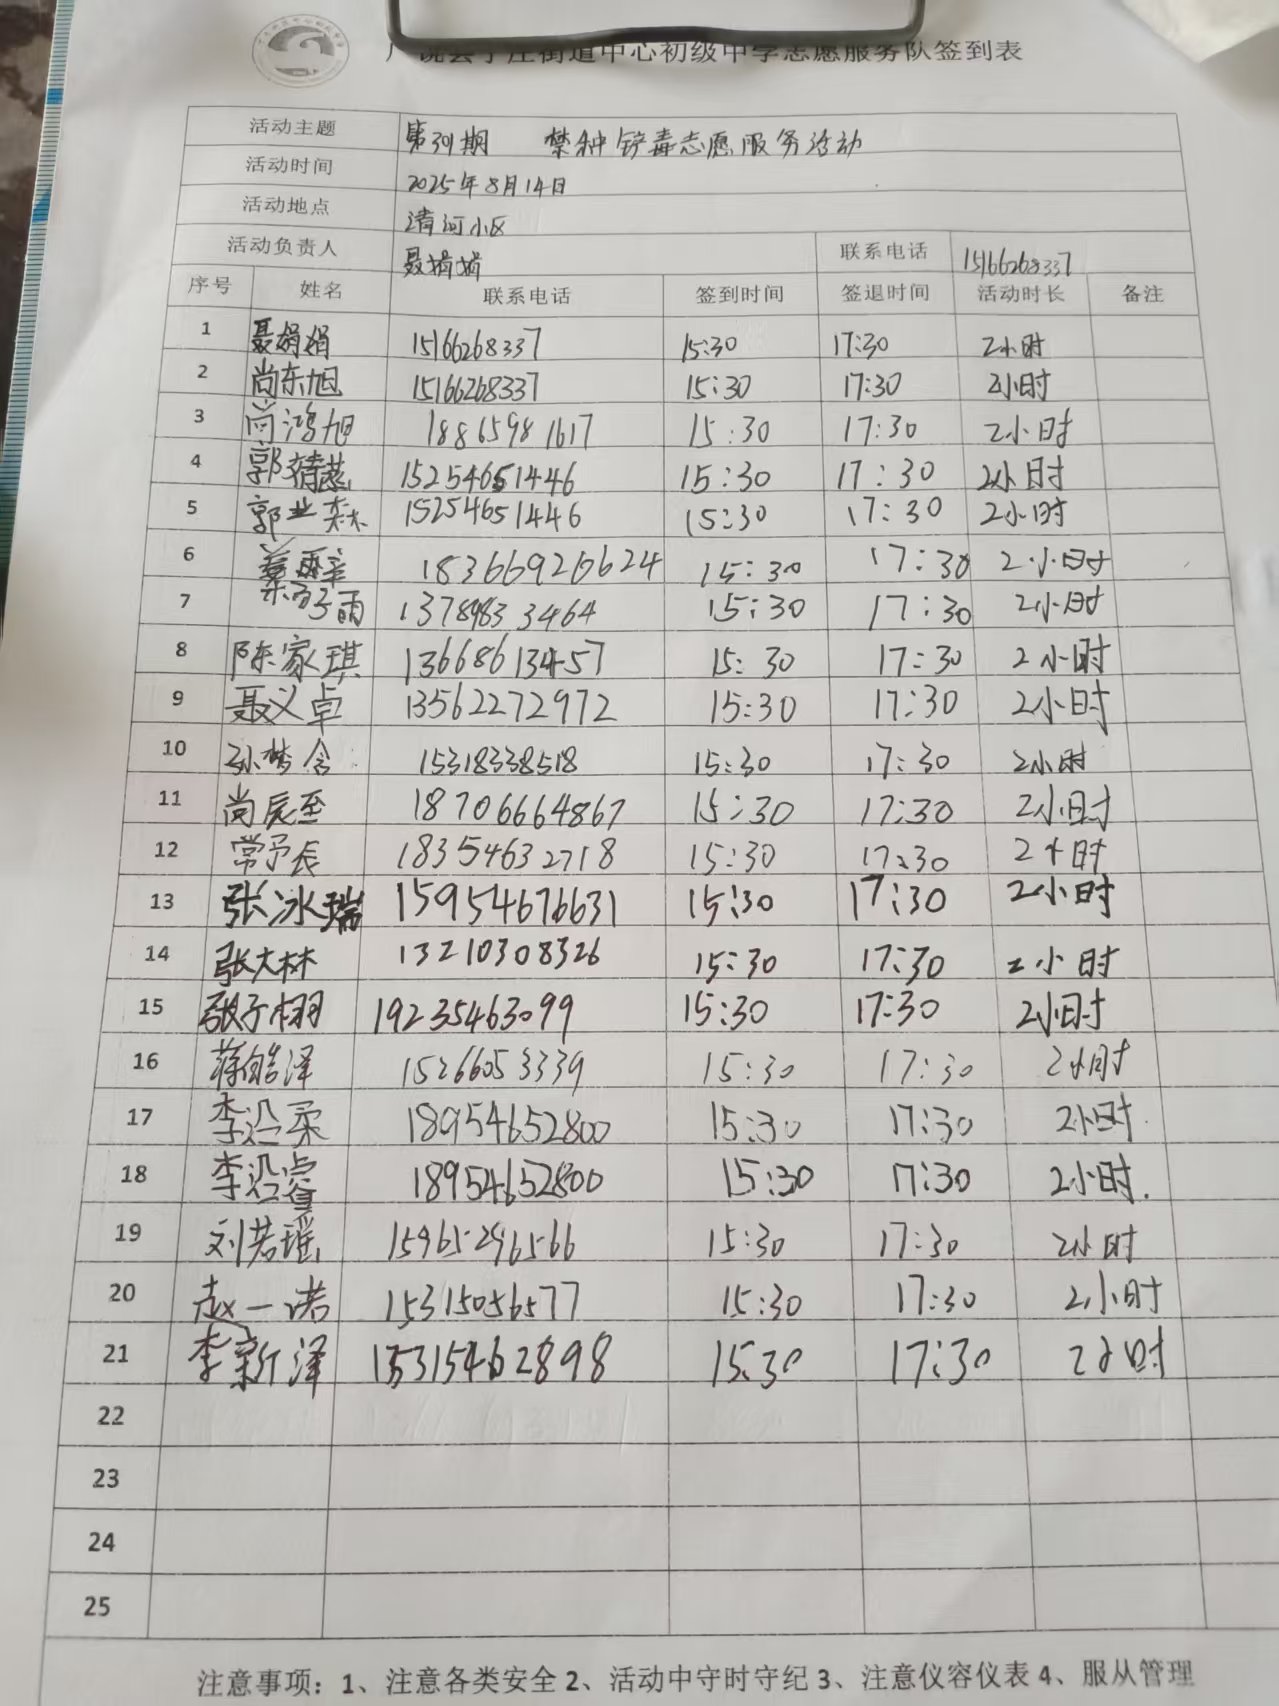 广饶县丁庄街道中心初级中学志愿服务队签到表
活动主题 第391期 禁种铲毒志愿服务活动
活动时间 2025年8月14日
活动地点 清河小区
活动负责人 聂娟娟 联系电话 15166268337
序号 姓名 联系电话 签到时间 签退时间 活动时长 备注
1 聂娟娟 15166268337 15:30 17:30 2小时
2 尚东旭 15166268337 15:30 17:30 2小时
3 尚鸿旭 18865981617 15:30 17:30 2小时
4 郭 15254651446 15:30 17:30 2小时
5 郭业森 15254651446 15:30 17:30 2小时
6 18366920624 15:30 17:30 2小时
7 雨 13789833464 15:30 17:30 2小时
8 陈家琪 13668613457 15:30 17:30 2小时
9 聂义卓 13562272972 15:30 17:30 2小时
10 孙梦含 15318338518 15:30 17:30 2小时
11 尚辰至 18706664867 15:30 17:30 2小时
12 常予长 18354632718 15:30 17:30 2小时
13 张冰瑞 15954676631 15:30 17:30 2小时
14 张大林 13210308326 15:30 17:30 2小时
15 子栩 19235463099 15:30 17:30 2小时
16 蒋皓泽 15266053339 15:30 17:30 2小时
17 李浥柔 18954652800 15:30 17:30 2小时
18 李浥睿 18954652800 15:30 17:30 2小时.
19 刘若瑶 15965296566 15:30 17:30 2小时
20 赵一诺 15315056577 15:30 17:30 2小时
21 李新泽 15315462898 15:30 17:30 2小时
22
23
24
25
注意事项：1、注意各类安全 2、活动中守时守纪 3、注意仪容仪表 4、服从管理